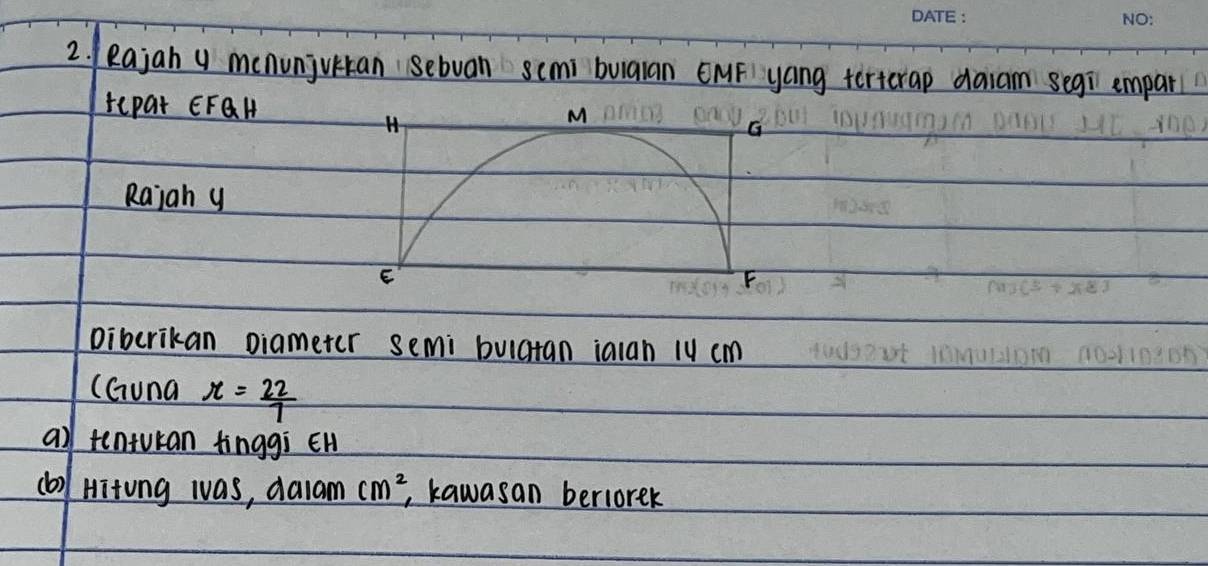 DATE :
NO:
2. Rajah 4 menunjukkan sebuah semi bulatan EMF yang terterap dalam segi empat
tepat EFGH
H
M
G
Rajah 4
E
F
Diberikan Diameter semi bulatan ialah 14 cm
(Guna π = 22/7
a) tentukan tinggi EH
(b) Hitung luas, dalam cm², kawasan berlorek